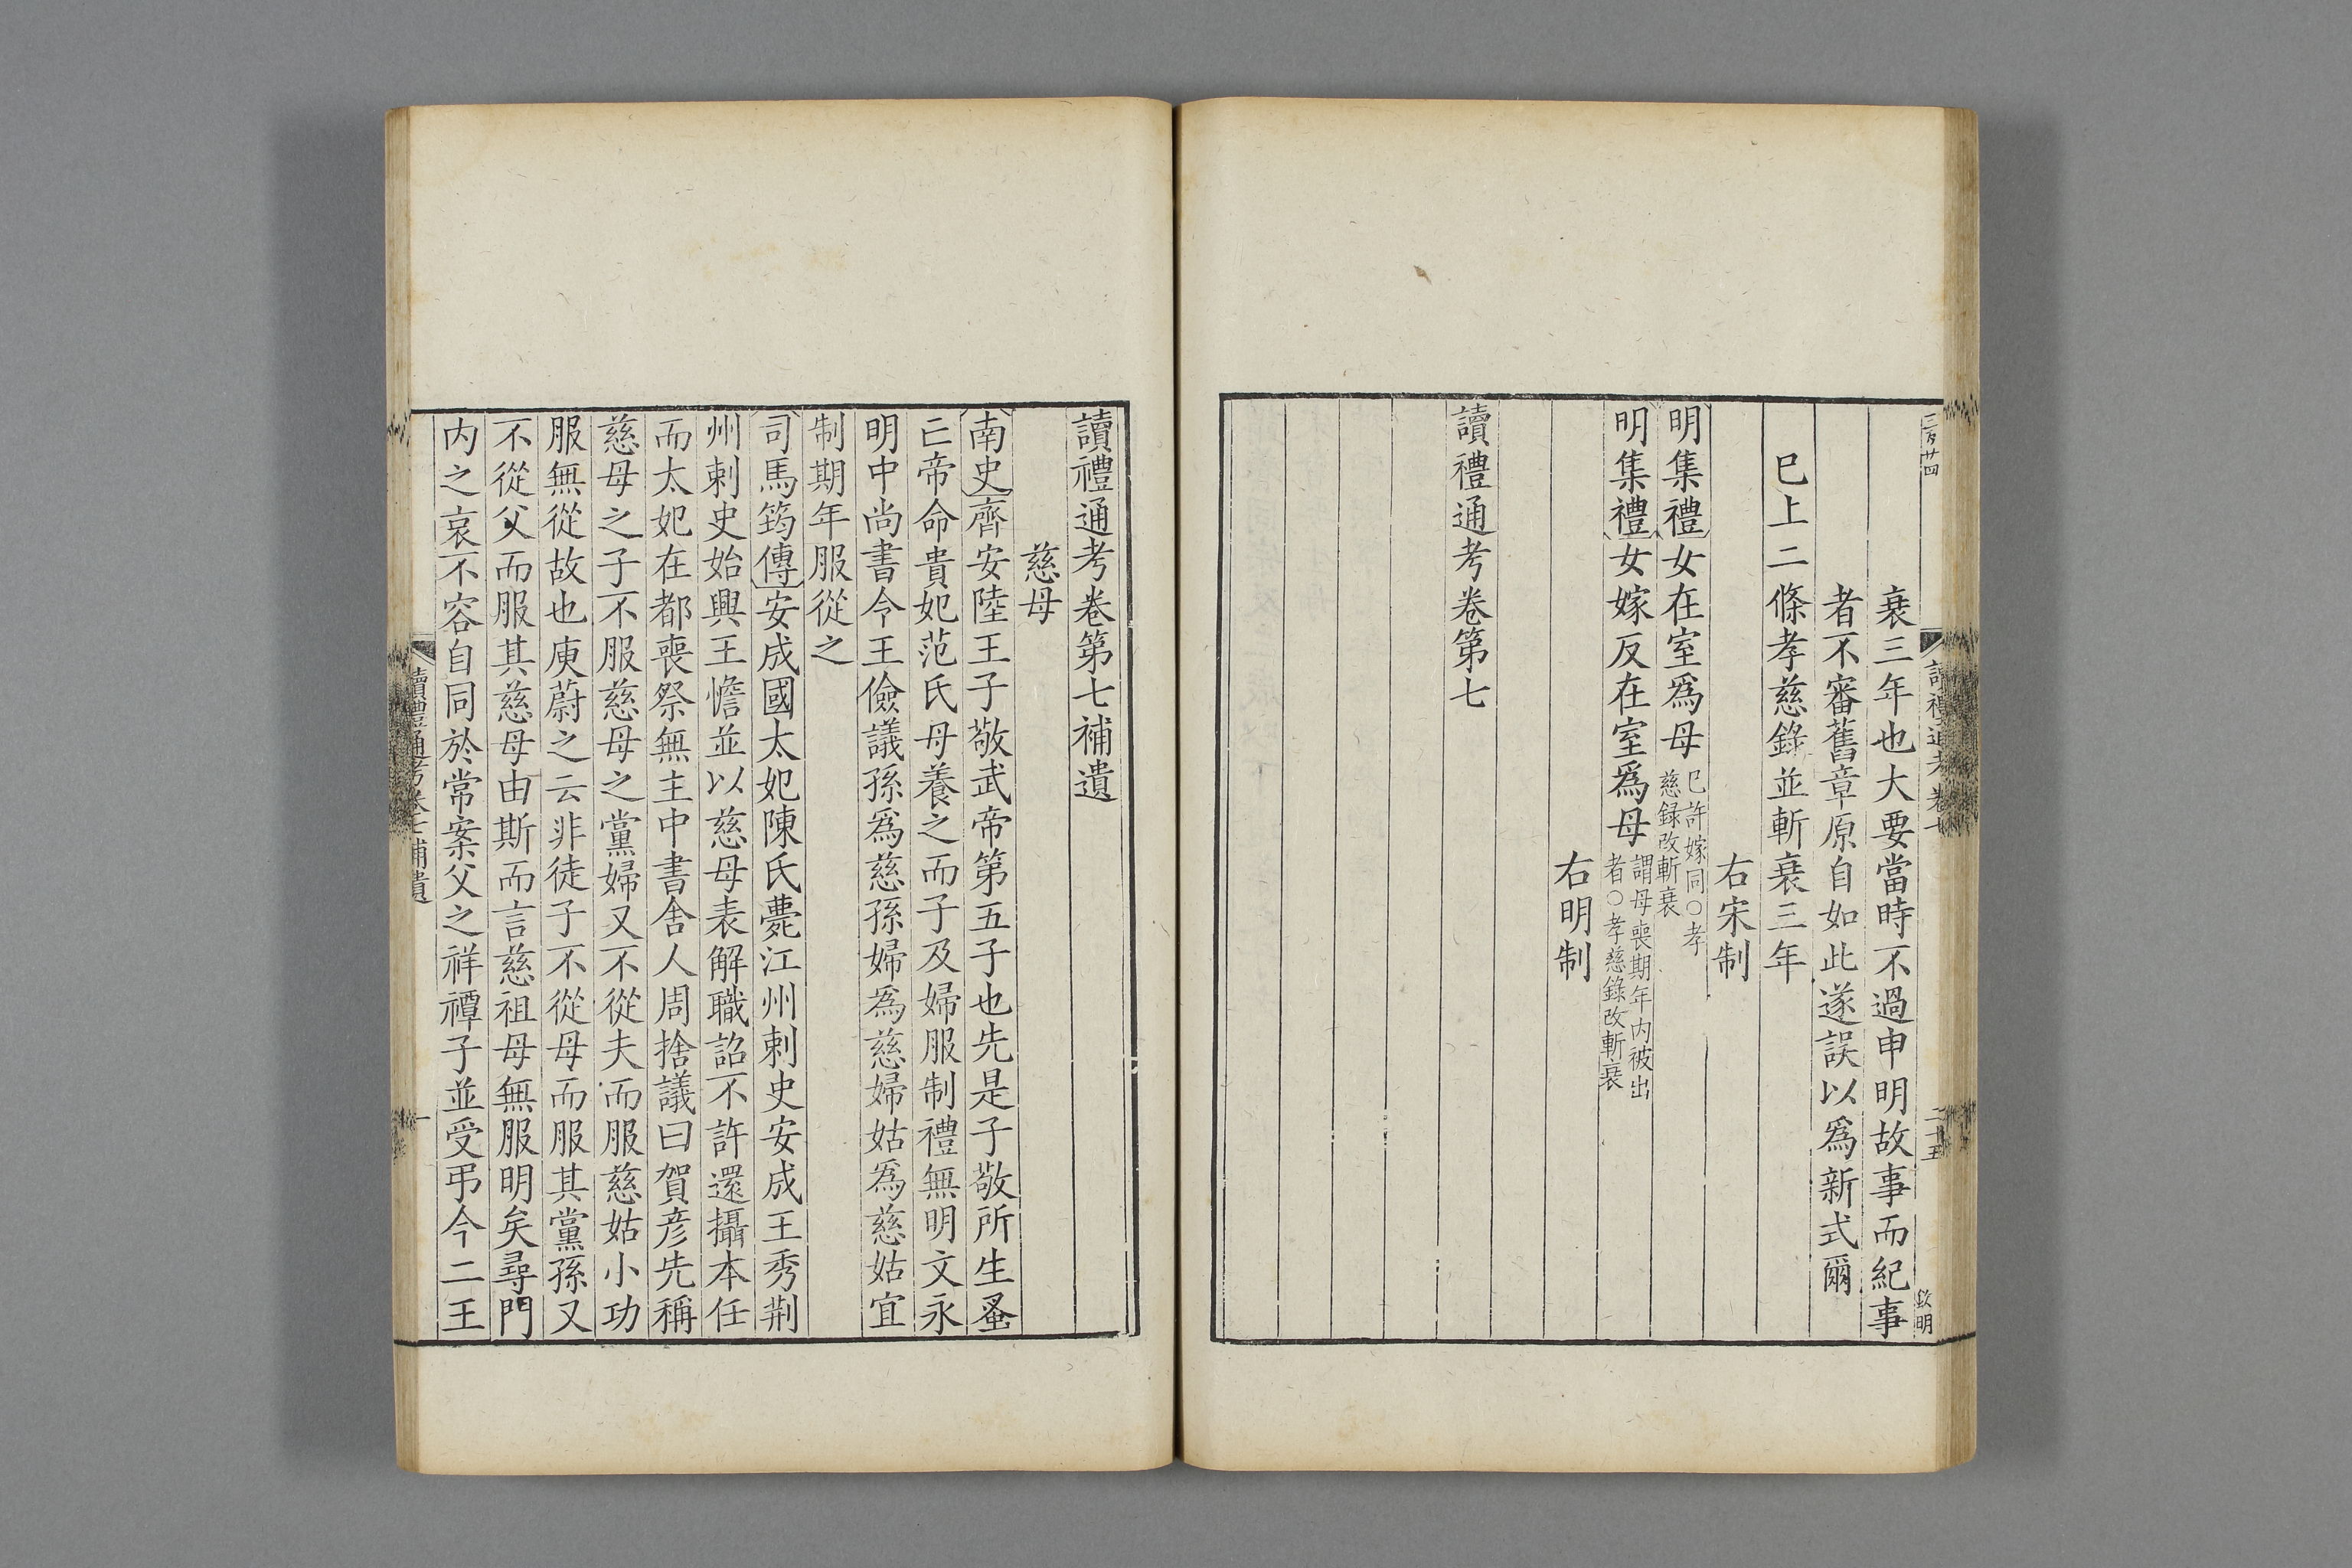 三百廿四
讀禮通考卷七
二十五
欽明
衰三年也大要當時不過申明故事而紀事
者不審舊章原自如此遂誤以爲新式爾
巳上二條孝慈錄並斬衰三年
右宋制
明集禮女在室爲母巳許嫁同○孝慈録改斬衰
明集禮女嫁反在室爲母謂母喪期年内被出者○孝慈錄改斬衰
右明制
讀禮通考卷第七
讀禮通考卷第七補遺
慈母
南史齊安陸王子敬武帝第五子也先是子敬所生蚤
亡帝命貴妃范氏母養之而子及婦服制禮無明文永
明中尚書令王儉議孫爲慈孫婦爲慈婦姑爲慈姑宜
制期年服從之
司馬筠傳安成國太妃陳氏薨江州刺史安成王秀荆
州刺史始興王憺並以慈母表解職詔不許還攝本任
而太妃在都喪祭無主中書舍人周捨議曰賀彦先稱
慈母之子不服慈母之黨婦又不從夫而服慈姑小功
服無從故也庾蔚之云非徒子不從母而服其黨孫又
不從父而服其慈母由斯而言慈祖母無服明矣尋門
内之哀不容自同於常案父之祥禫子並受弔今二王
讀禮通考卷七補遺
一